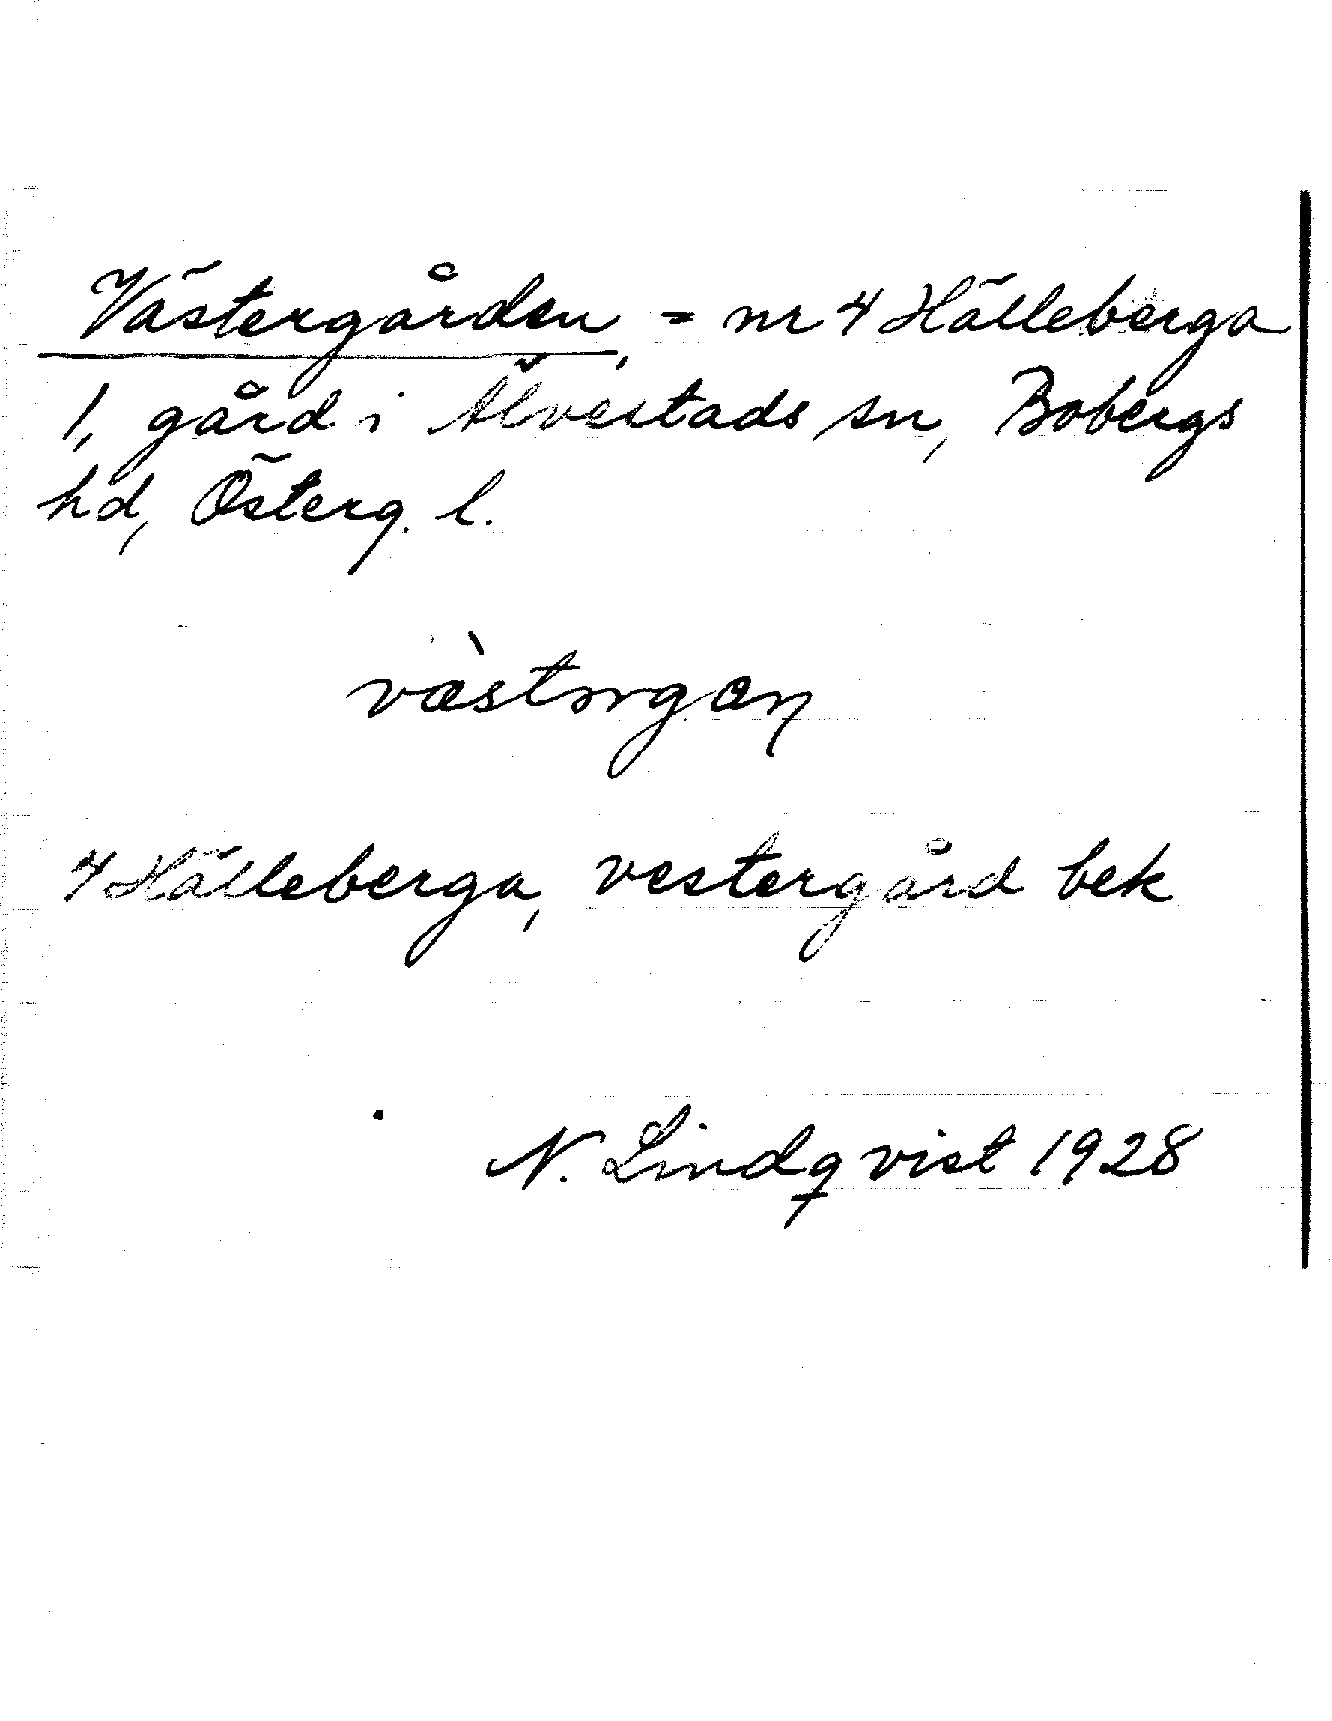 Västergården, = nr 4 Hälleberga
1, gård i Älvestads sn, Bobergs
hd, Österg. l.
4 Hälleberga, vestergård bek
N. Lindqvist 1928